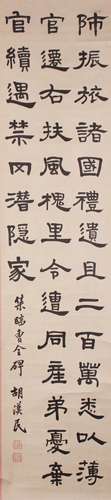 師振旅諸國禮遺且二百萬悉以薄
官遷右扶風槐里令遭同產弟憂棄
官續遇禁冈潛隱家
集臨曹全碑 胡漢民